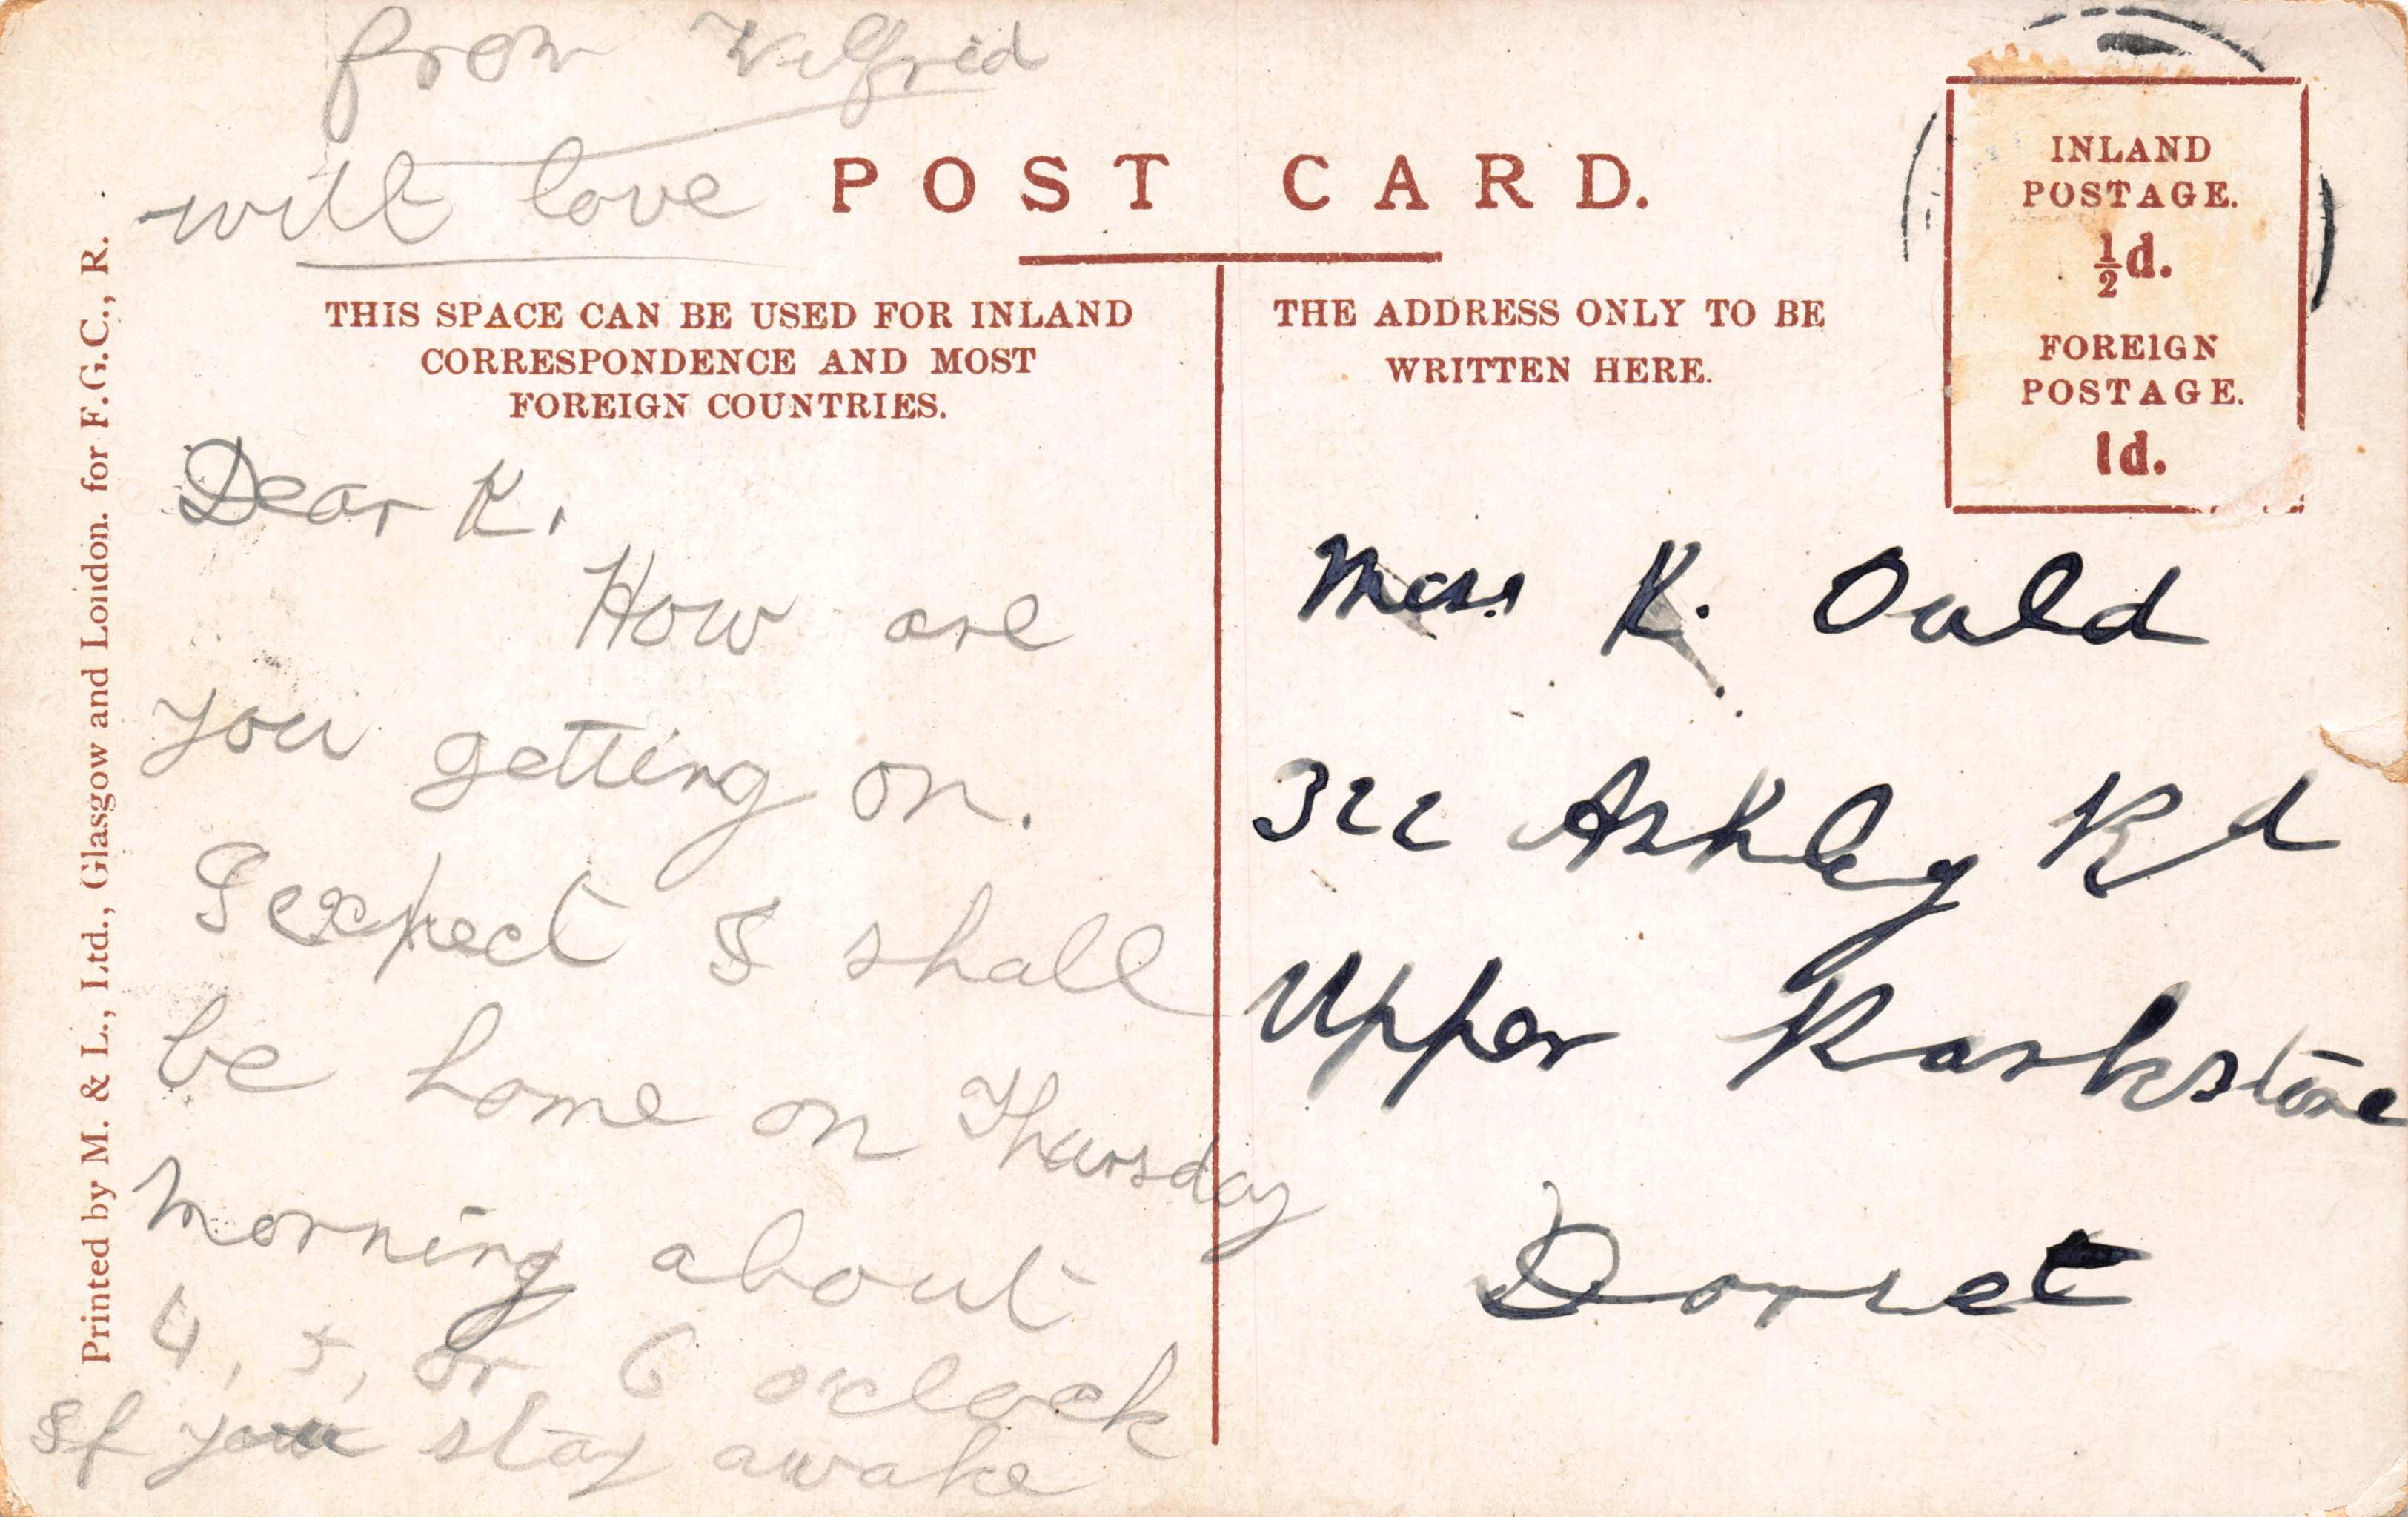 from Wilfrid
with love
POST CARD.
THIS SPACE CAN BE USED FOR INLAND
CORRESPONDENCE AND MOST
FOREIGN COUNTRIES.
Dear K.
How are
you getting on.
I expect I shall
be home on Thursday
morning about
4, 5, or 6 o'clock
If you stay awake
THE ADDRESS ONLY TO BE
WRITTEN HERE.
INLAND
POSTAGE.
½d.
FOREIGN
POSTAGE.
1d.
Miss K. Ould
322 Ashley Rd
Upper Parkstone
Dorset
Printed by M. & L., Ltd., Glasgow and London. for F.G.C., R.